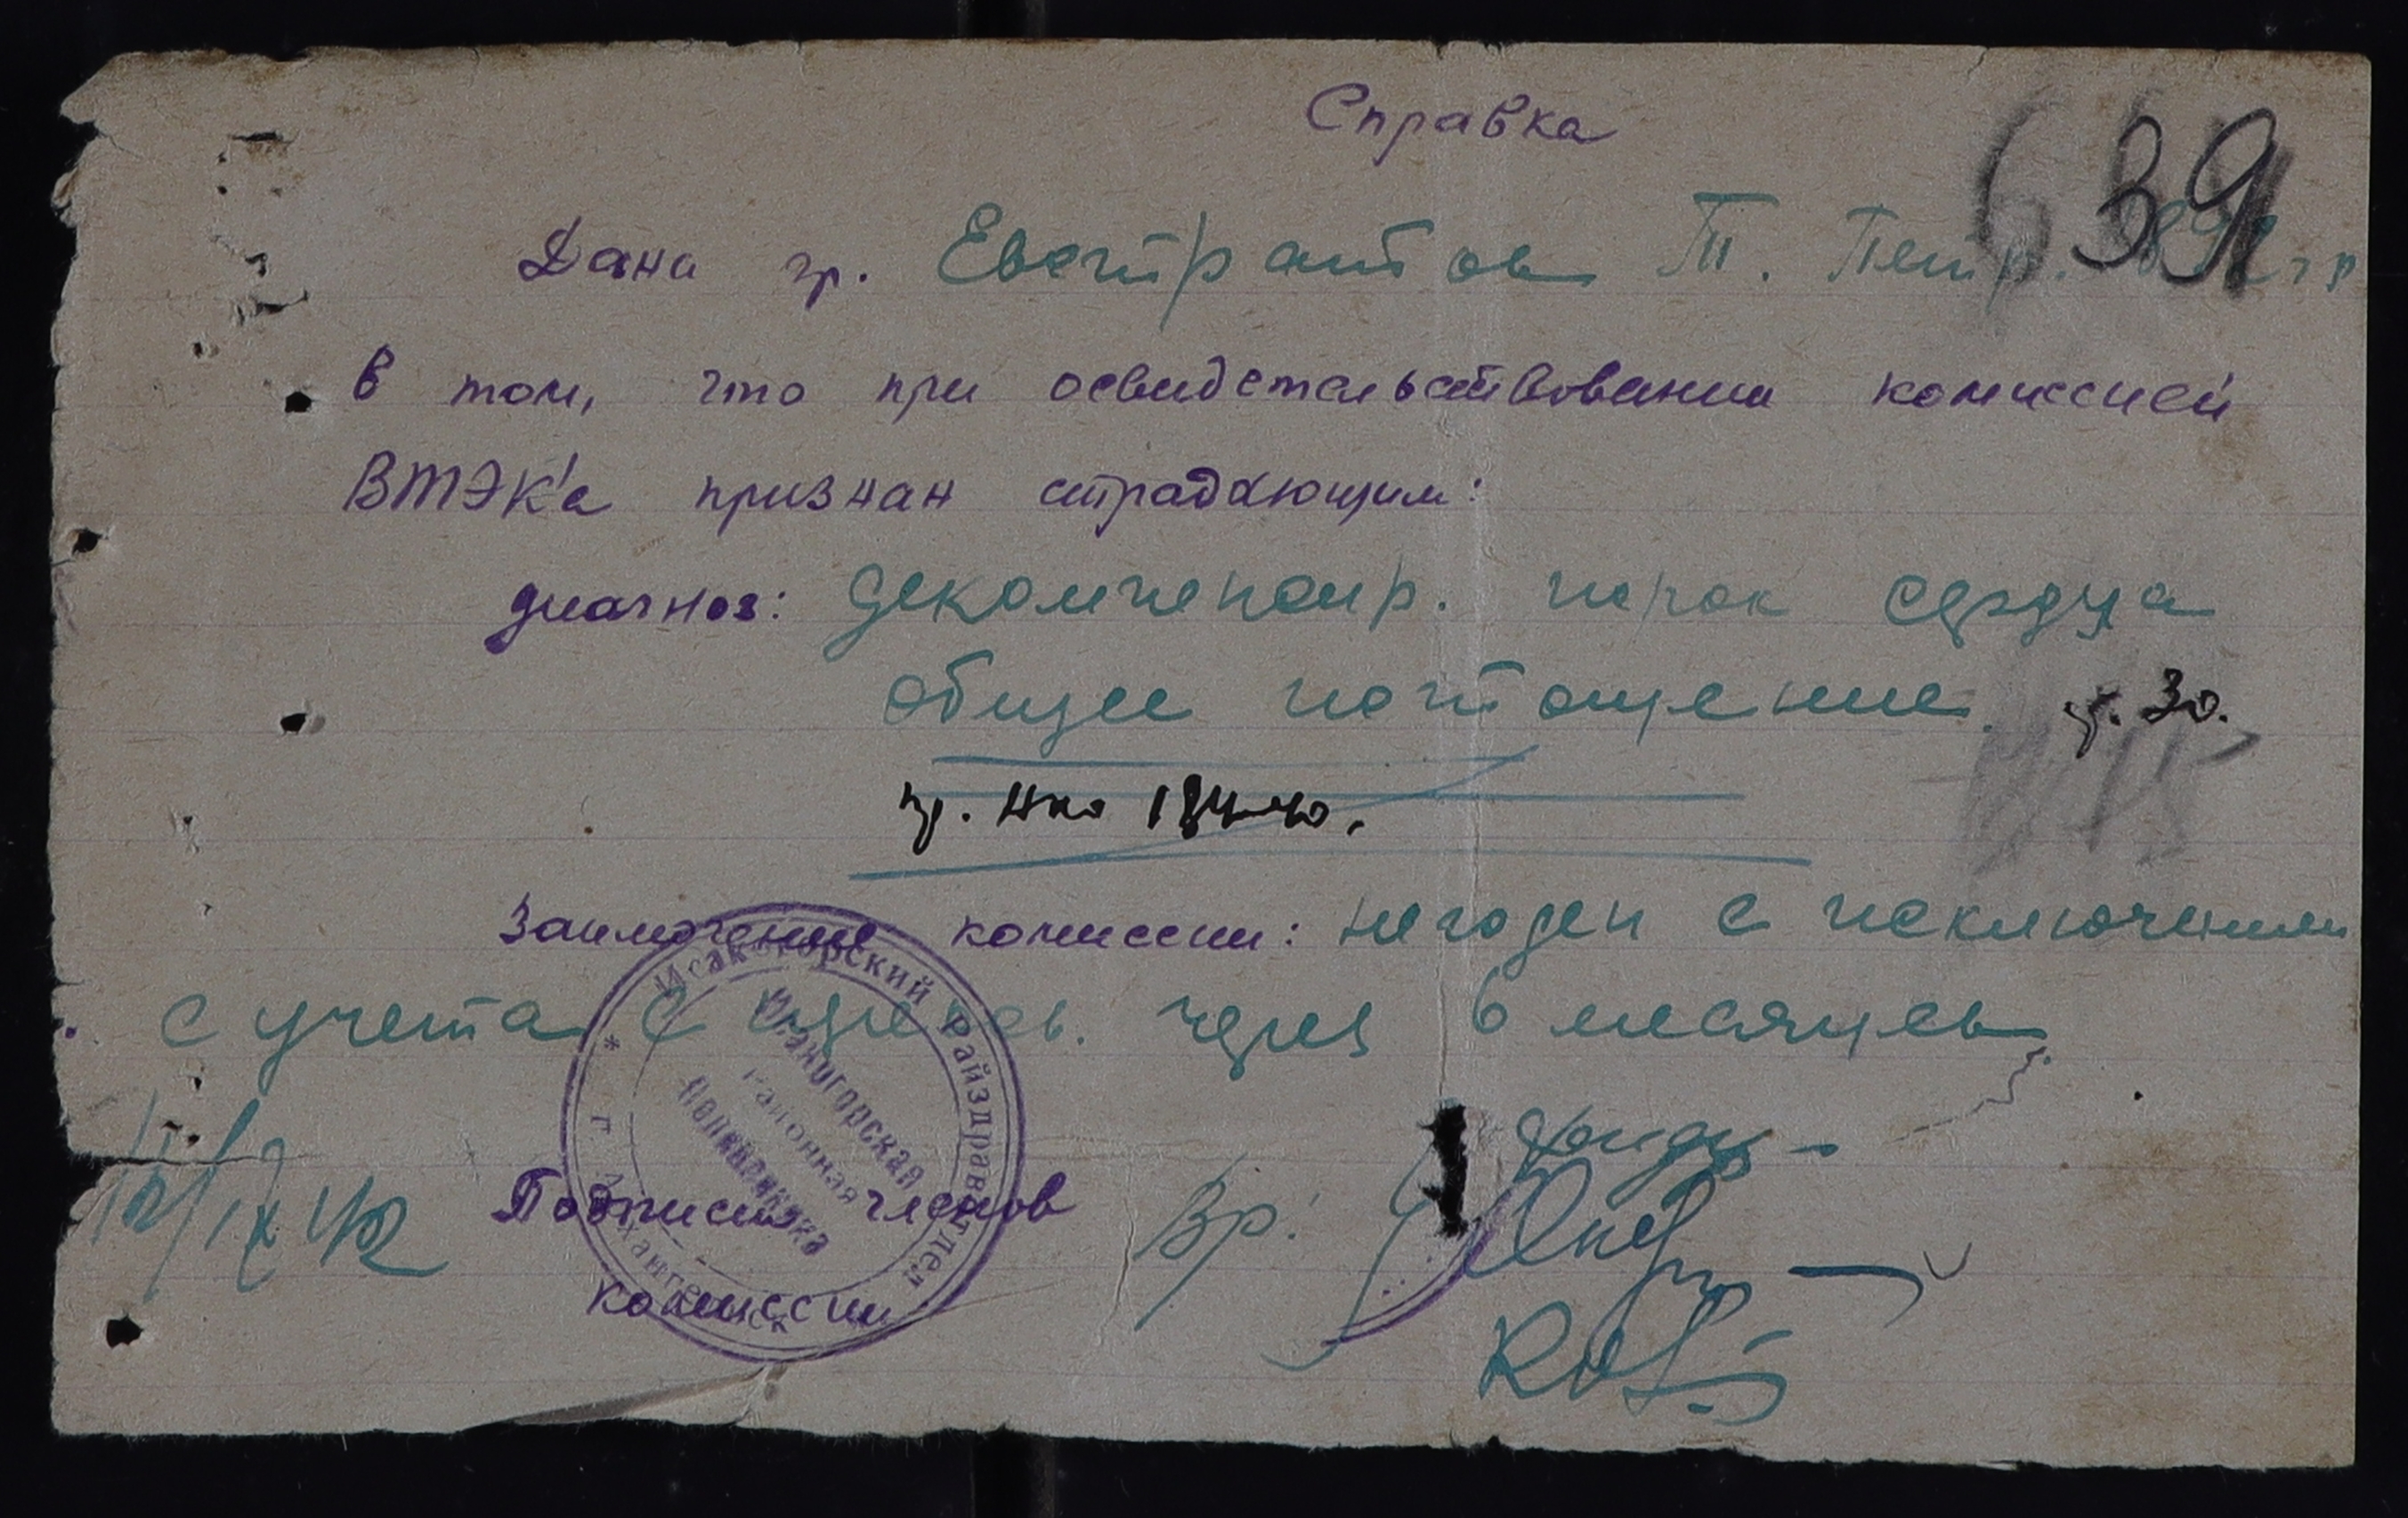 Справка
39
Дана гр. Евстратов Т. Петр. г р
в том, что при освидетельствовании комиссией
ВТЭК'а признан страдающим:
диагноз: декомпенсир. порок сердца
общее истощение. г. 30.
пр. Нко 184-40.
Заключение комиссии: негоден с исключением
с учета с через 6 месяцев
Исакогорский Райздравотдел
* г. Архангельск
Исакогорская
районная
поликлиника
12/IX 42
Подписи членов
комиссии
Вр.